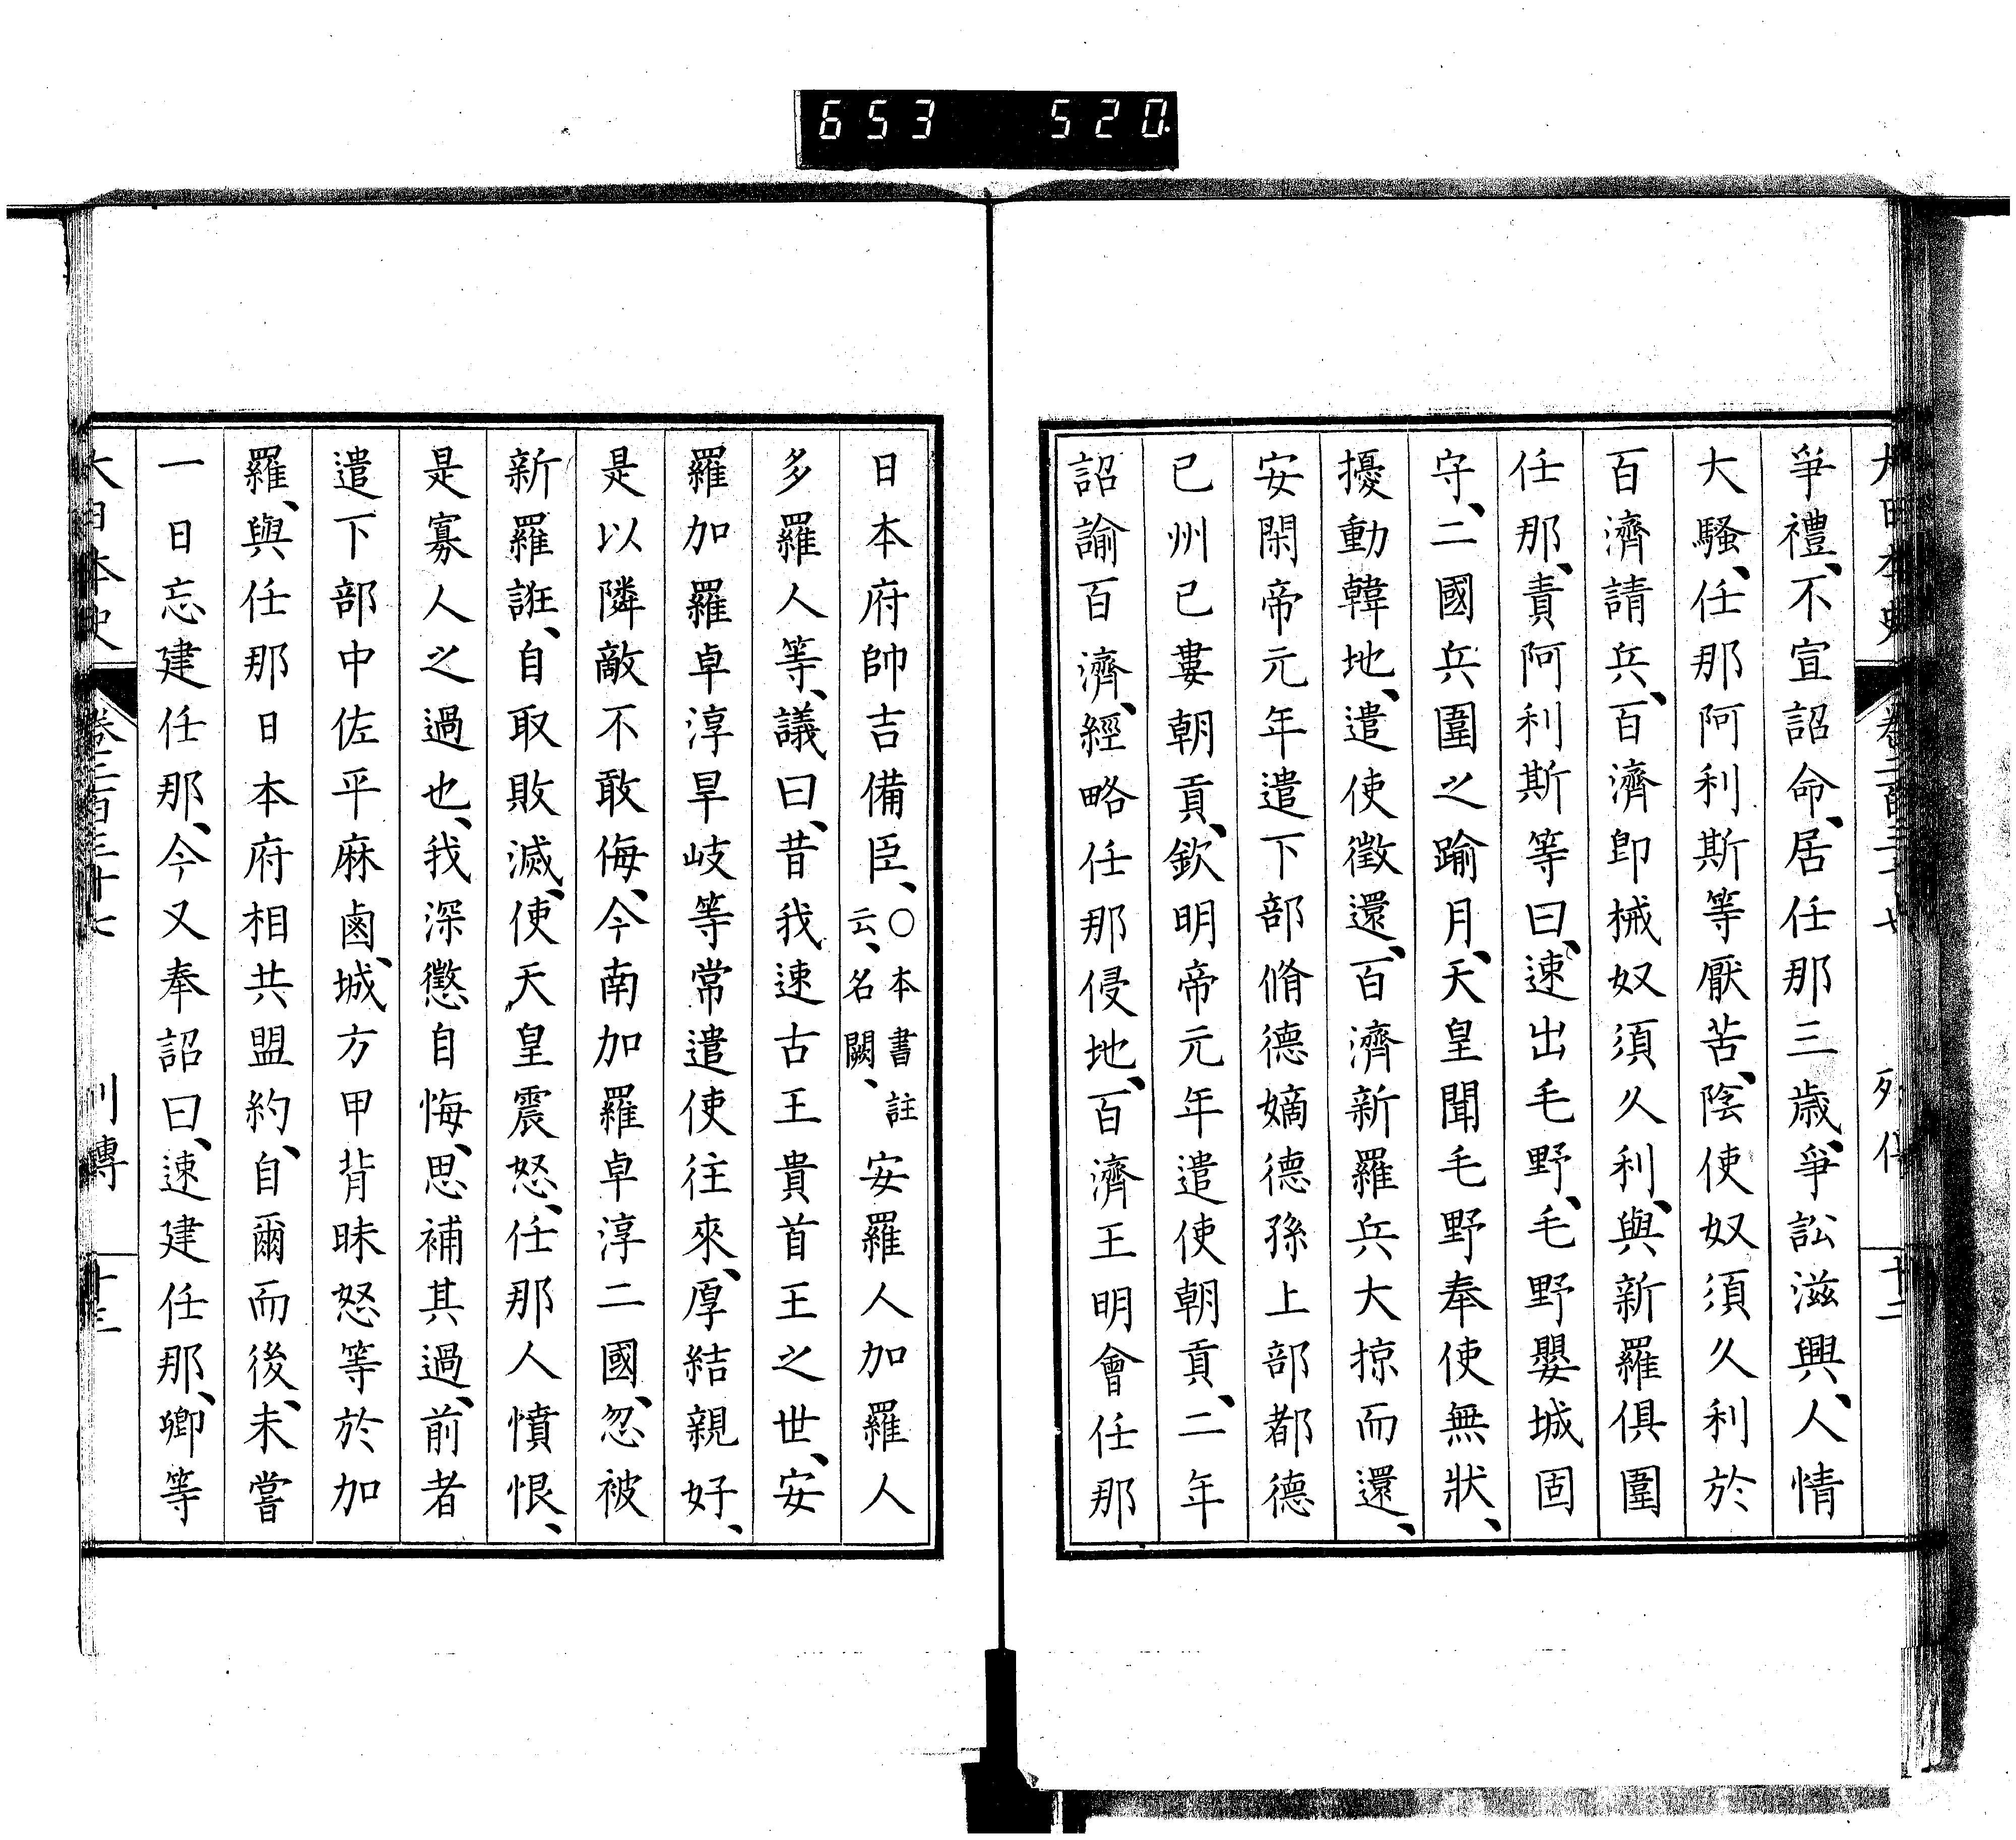 653 520.
爭禮、不宣詔命、居任那三歳、爭訟滋興、人情
大騷、任那阿利斯等厭苦、陰使奴須久利於
百濟請兵、百濟卽械奴須久利、與新羅俱圍
任那、責阿利斯等曰、速出毛野、毛野嬰城固
守、二國兵圍之踰月、天皇聞毛野奉使無狀、
擾動韓地、遣使徵還、百濟新羅兵大掠而還、
安閑帝元年遣下部脩德嫡德孫上部都德
已州已婁朝貢、欽明帝元年遣使朝貢、二年
詔諭百濟、經略任那侵地、百濟王明會任那
日本府帥吉備臣、〇本書註云、名闕、安羅人加羅人
多羅人等、議曰、昔我速古王貴首王之世、安
羅加羅卓淳旱岐等常遣使往來、厚結親好、
是以隣敵不敢侮、今南加羅卓淳二國、忽被
新羅誑、自取敗滅、使天皇震怒、任那人憤恨、
是寡人之過也、我深懲自悔、思補其過、前者
遣下部中佐平麻鹵、城方甲背昧怒等於加
羅、與任那日本府相共盟約、自爾而後、未嘗
一日忘建任那、今又奉詔曰、速建任那、卿等
大日本史 卷二百三十七 列傳 十三